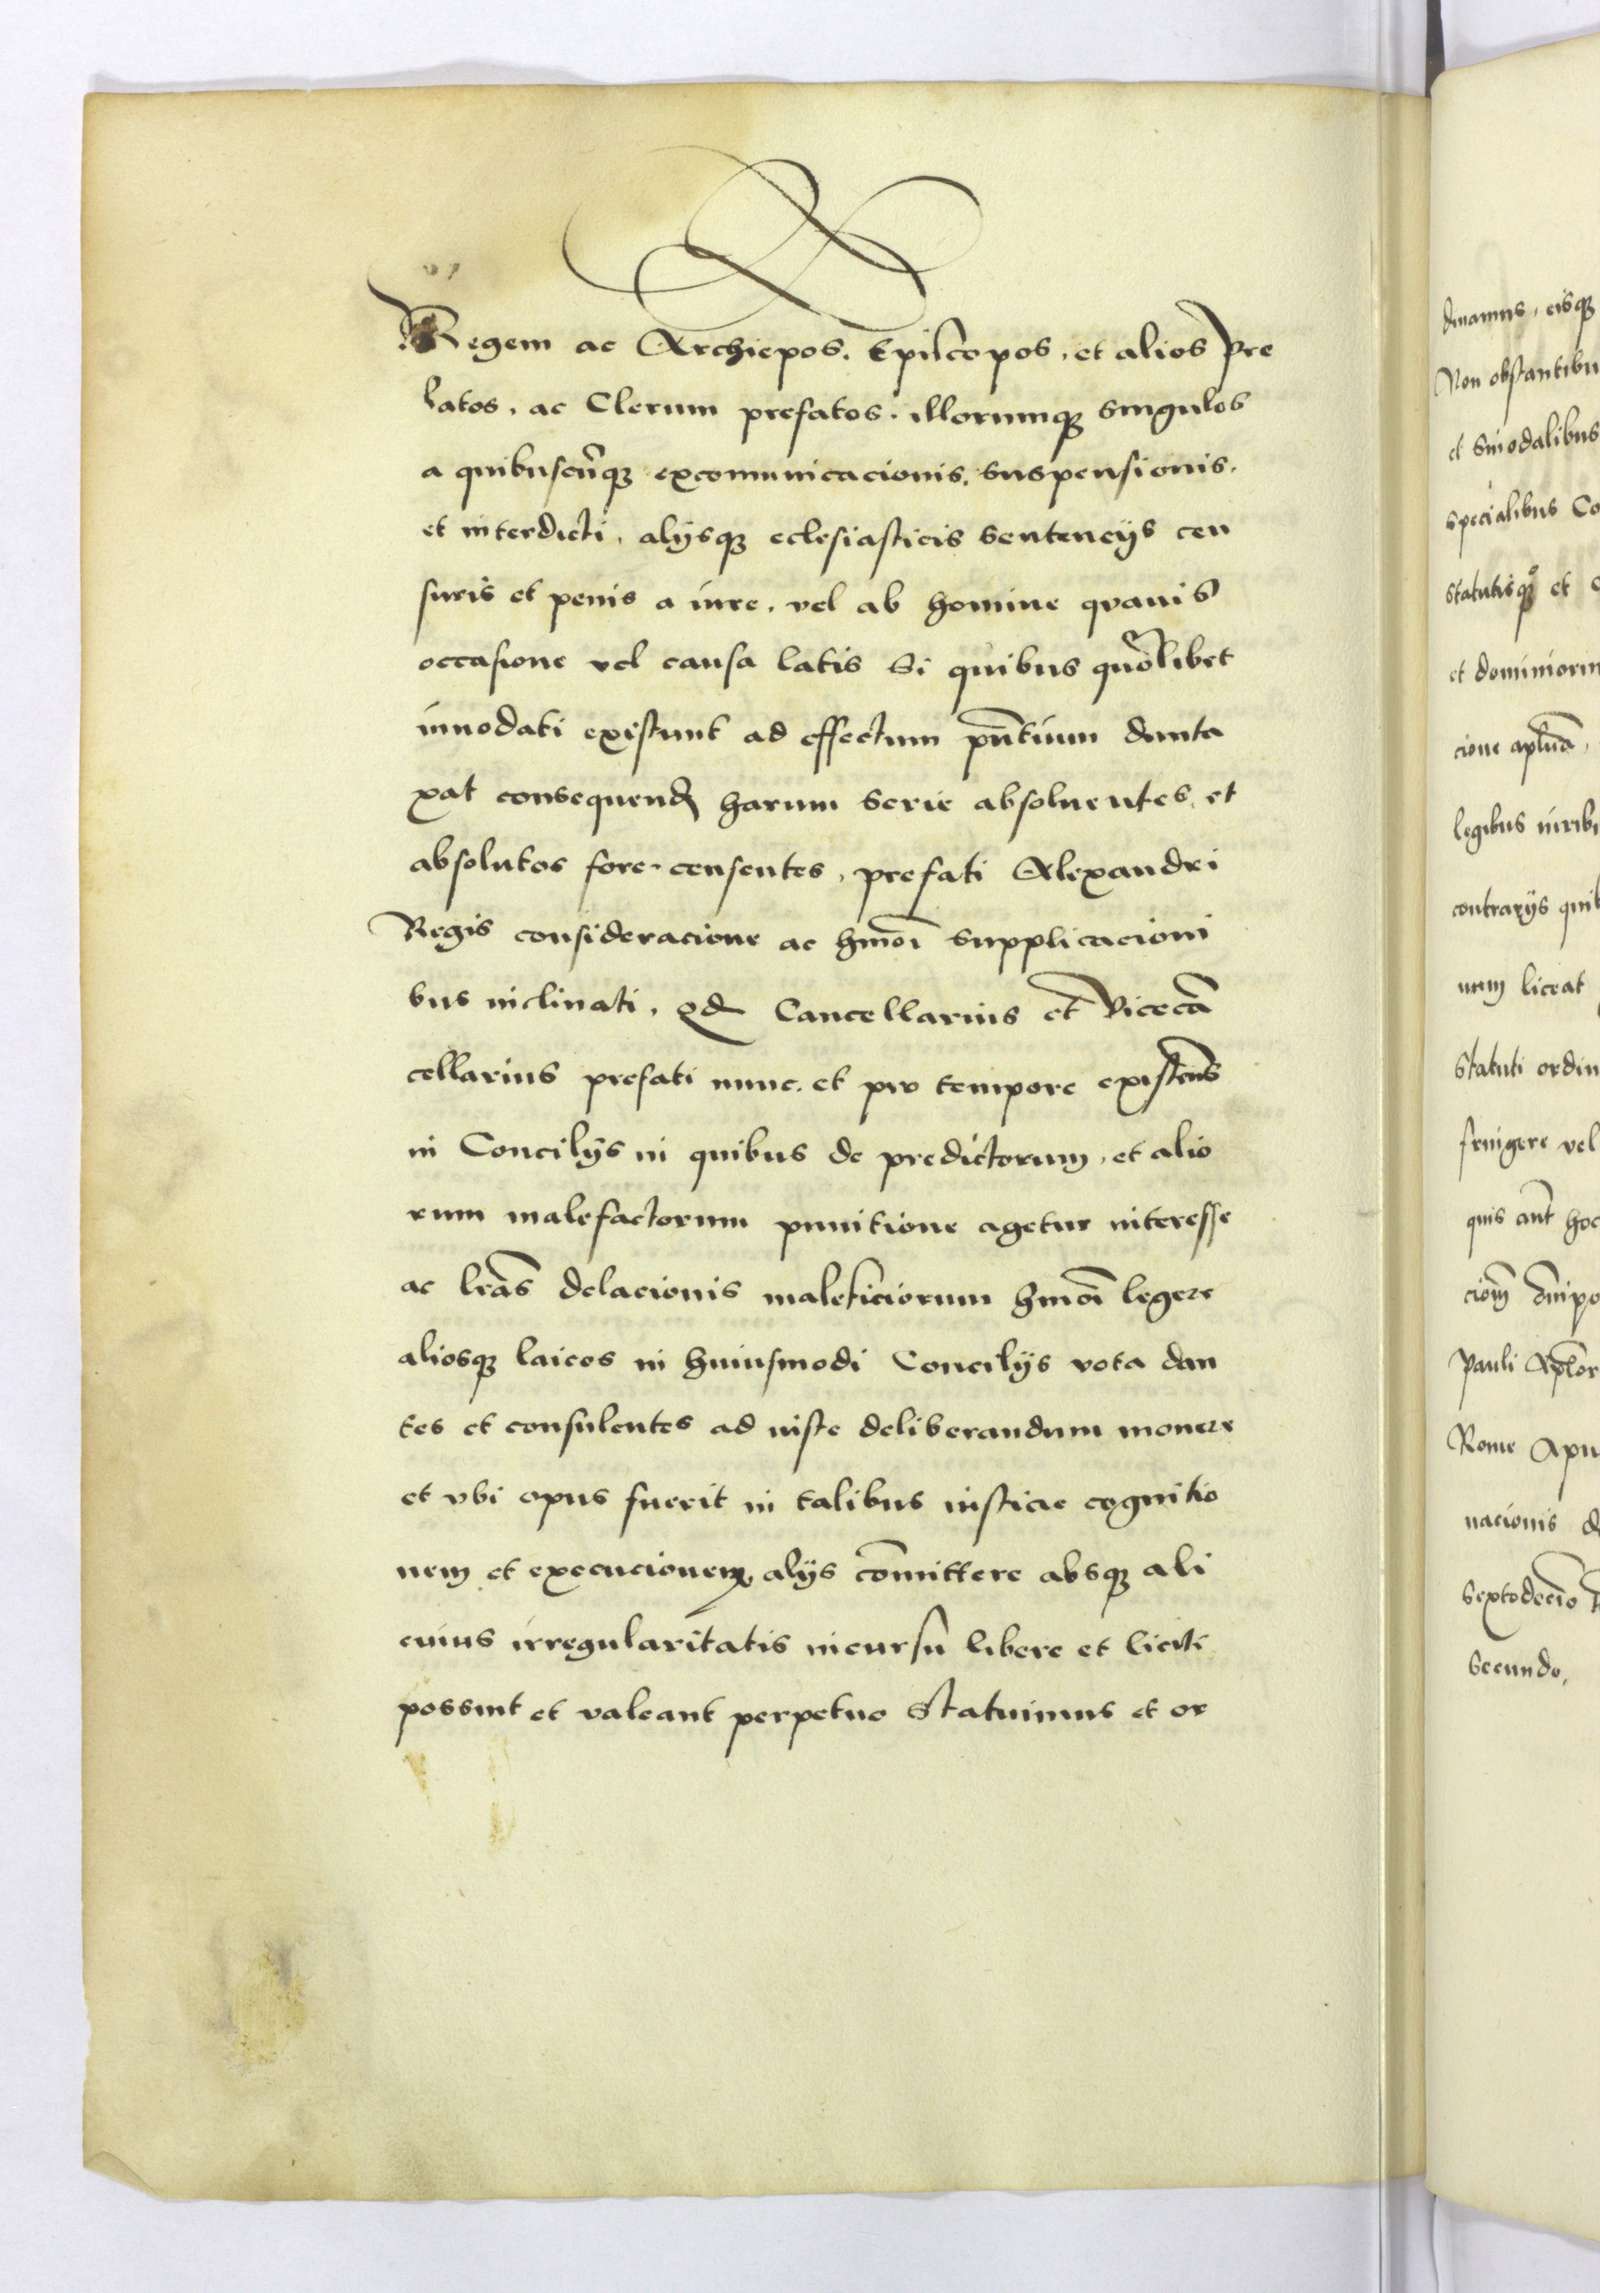 Regem ac Archiepos. Episcopos, et alios Pre
latos, ac Clerum prefatos. illorumqꝫ singulos
a quibuscũqꝫ excomunicacionis, suspensionis,
et interdicti, alijsqꝫ eclesiasticis sentencijs cen
suris et penis a iure, vel ab homine quauis
occasione vel causa latis Si quibus quõlibet
innodati existunt ad effectum pñtium dunta
xat consequend harum serie absoluentes, et
absolutos fore censentes, prefati Alexandri
Regis consideracione ac hmõi supplicacioni
bus inclinati, qd Cancellarius et Vicecã
cellarius prefati nunc, et pro tempore existens
in Concilijs in quibus de predictorum, et alio
rum malefactorum punitione agetur interesse
ac lrãs delacionis maleficiorum hmõi legere
aliosqꝫ laicos in huiusmodi Concilijs vota dan
tes et consulentes ad iuste deliberandum monere
et vbi opus fuerit in talibus iusticie cognitio
nem et execucionem, alijs cõmittere absqꝫ ali
cuius irregularitatis incursu libere et liciti
possint et valeant perpetuo Statuimus et or
dinamus, eisqꝫ
Non obstantibu
et sinodalibus
specialibus Co
statutisqꝫ et
et dominiorum
cione aplicã,
legibus iuribu
contrarijs quib
num liceat
statuti ordin
fringere vel
quis aut hoc
ciom̃ omipo
Pauli Aplor
Rome Apu
nacionis d
sextodecio
secundo.